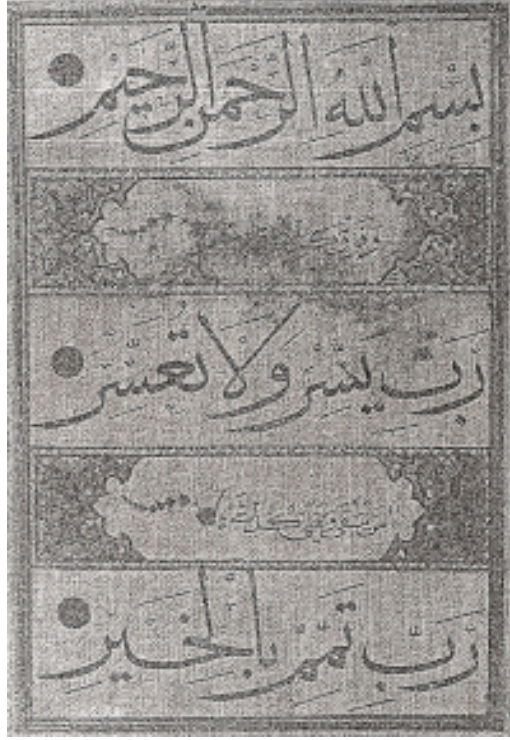 بِسْمِ اللهُ الرَّحْمٰنِ الرَّحِيْمِ
رَبِّ يَسِّرْ وَلَا تُعَسِّرْ
رَبِّ تَمِّمْ بِالْخَيْرِ